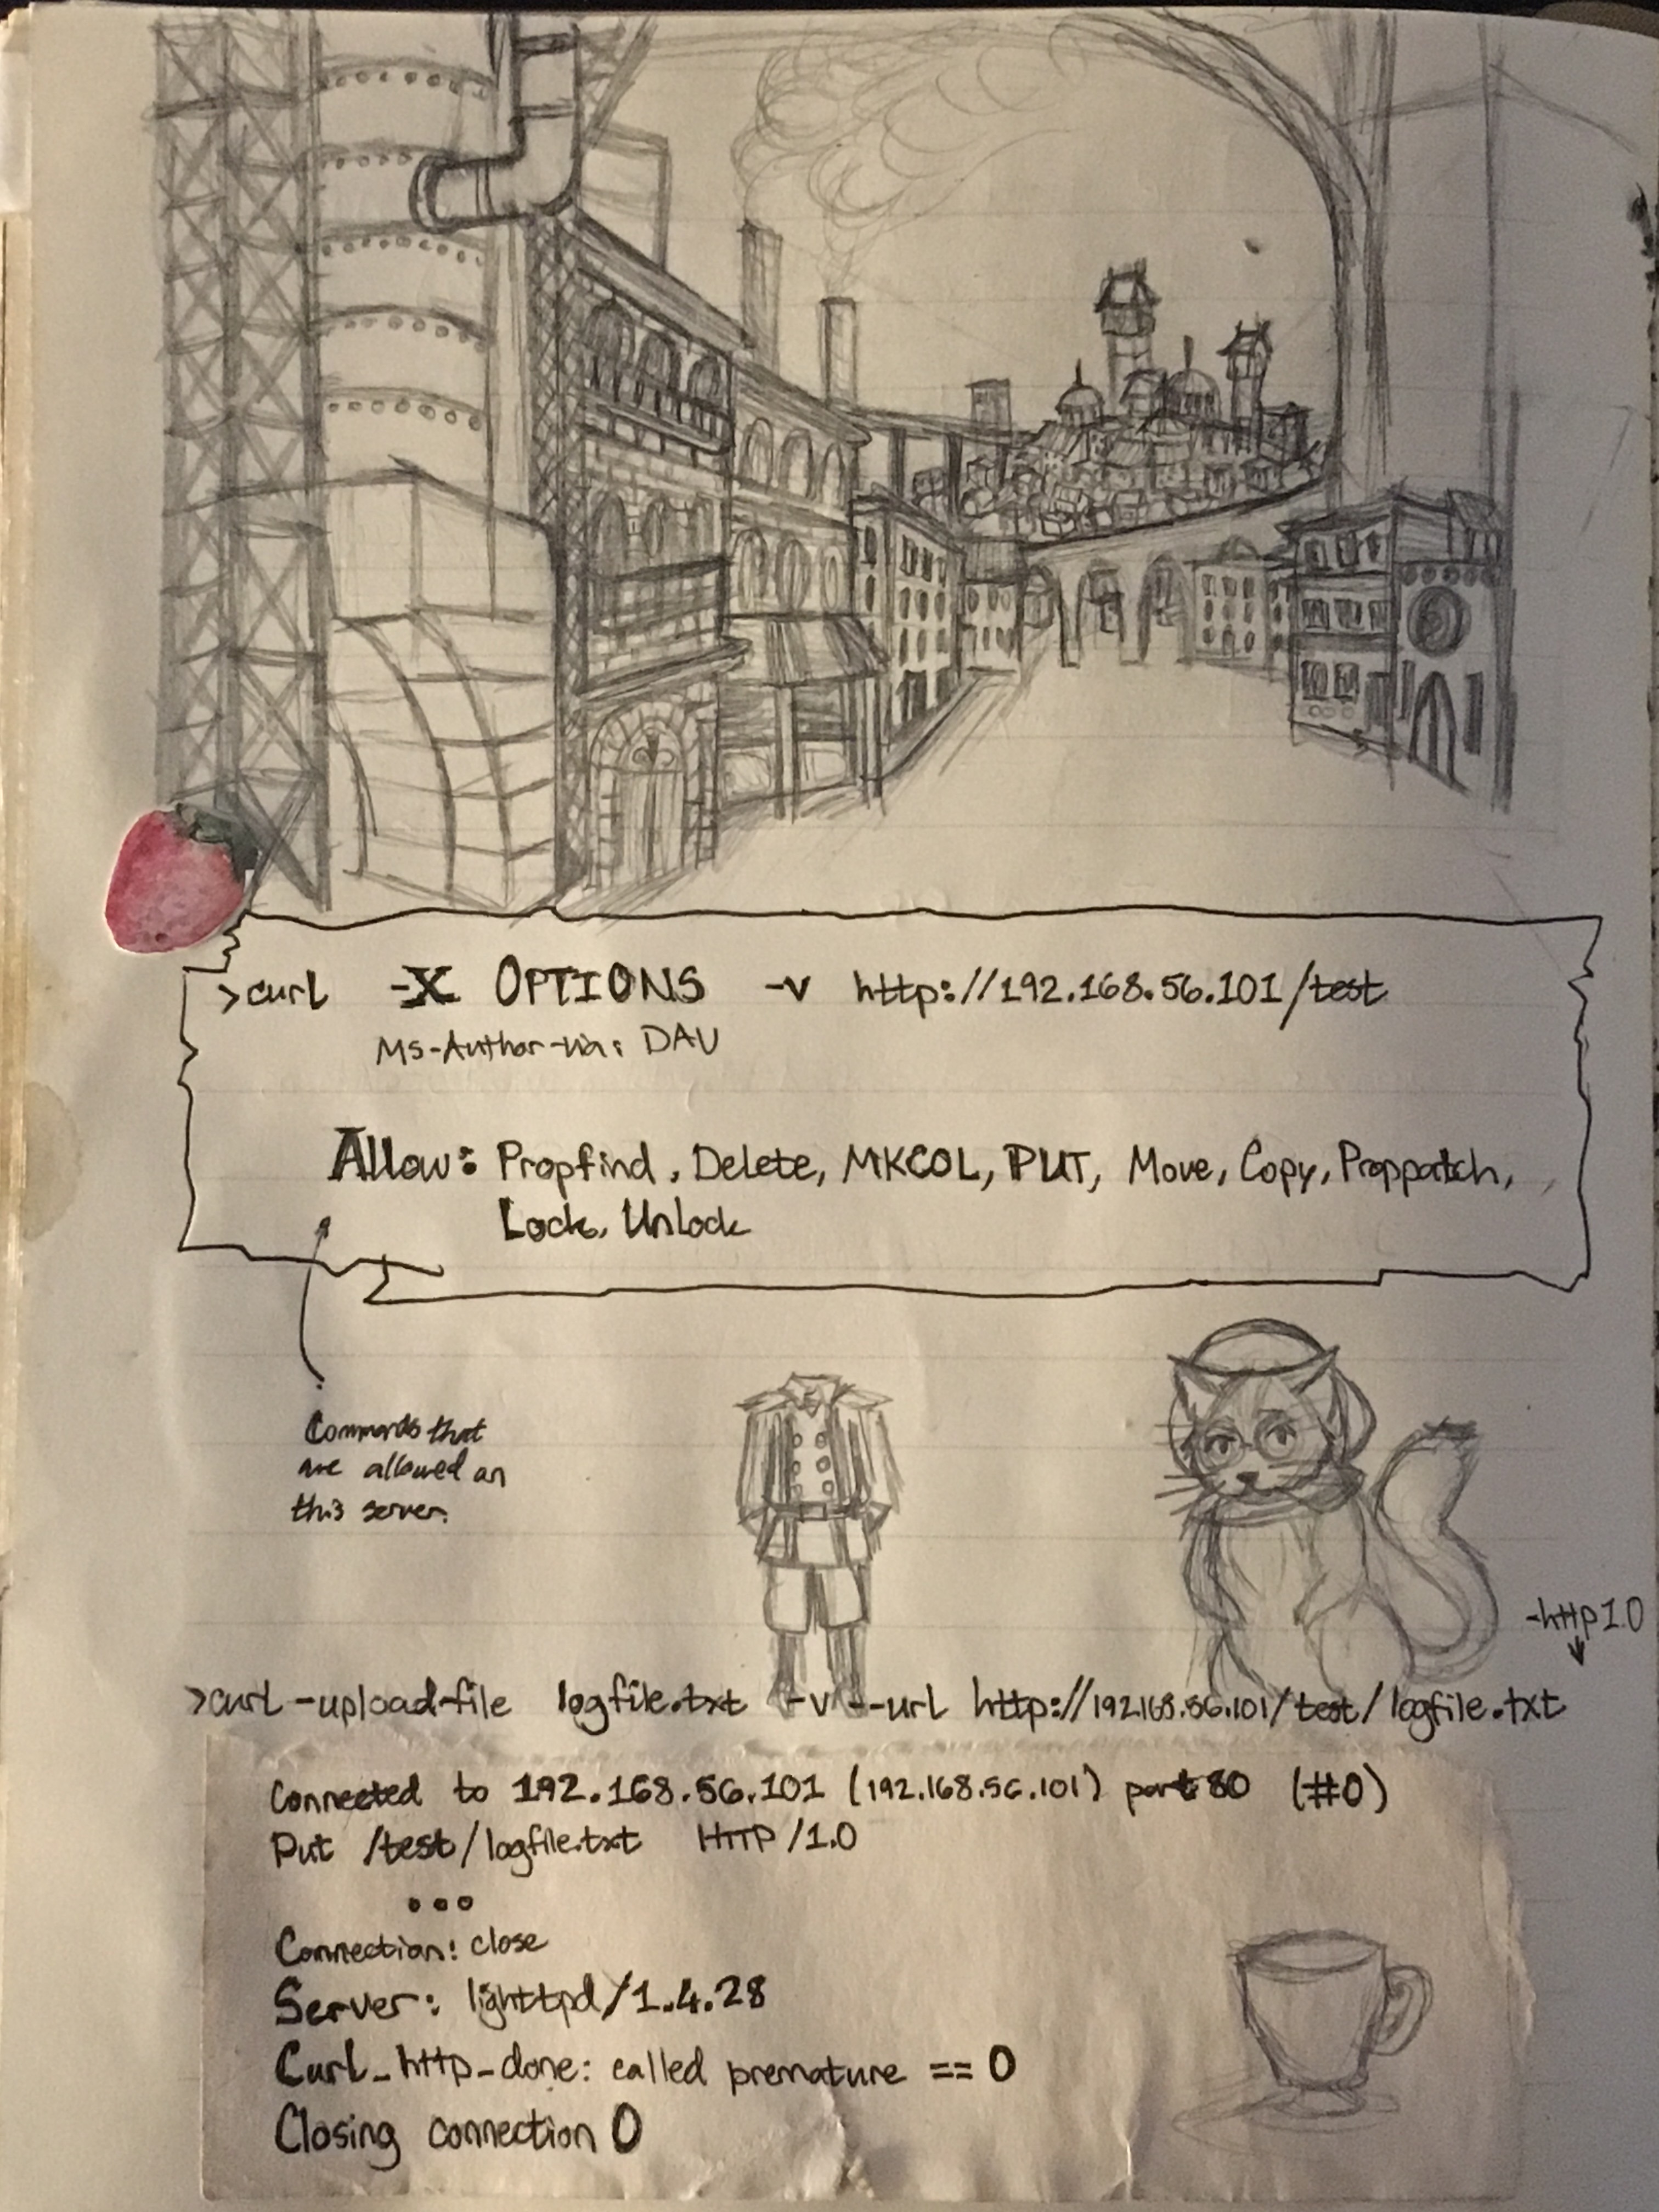 >curl -X OPTIONS -v http://192.168.56.101/test
Ms-Author-via: DAV
Allow: Propfind, Delete, MKCOL, PUT, Move, Copy, Proppatch,
Lock, Unlock
Commands that
are allowed on
this server.
-http1.0
>curl -upload-file logfile.txt -v --url http://192.168.56.101/test/logfile.txt
Connected to 192.168.56.101 (192.168.56.101) port 80 (#0)
Put /test/logfile.txt HTTP/1.0
...
Connection: close
Server: lighttpd/1.4.28
Curl_http_done: called premature == 0
Closing connection 0